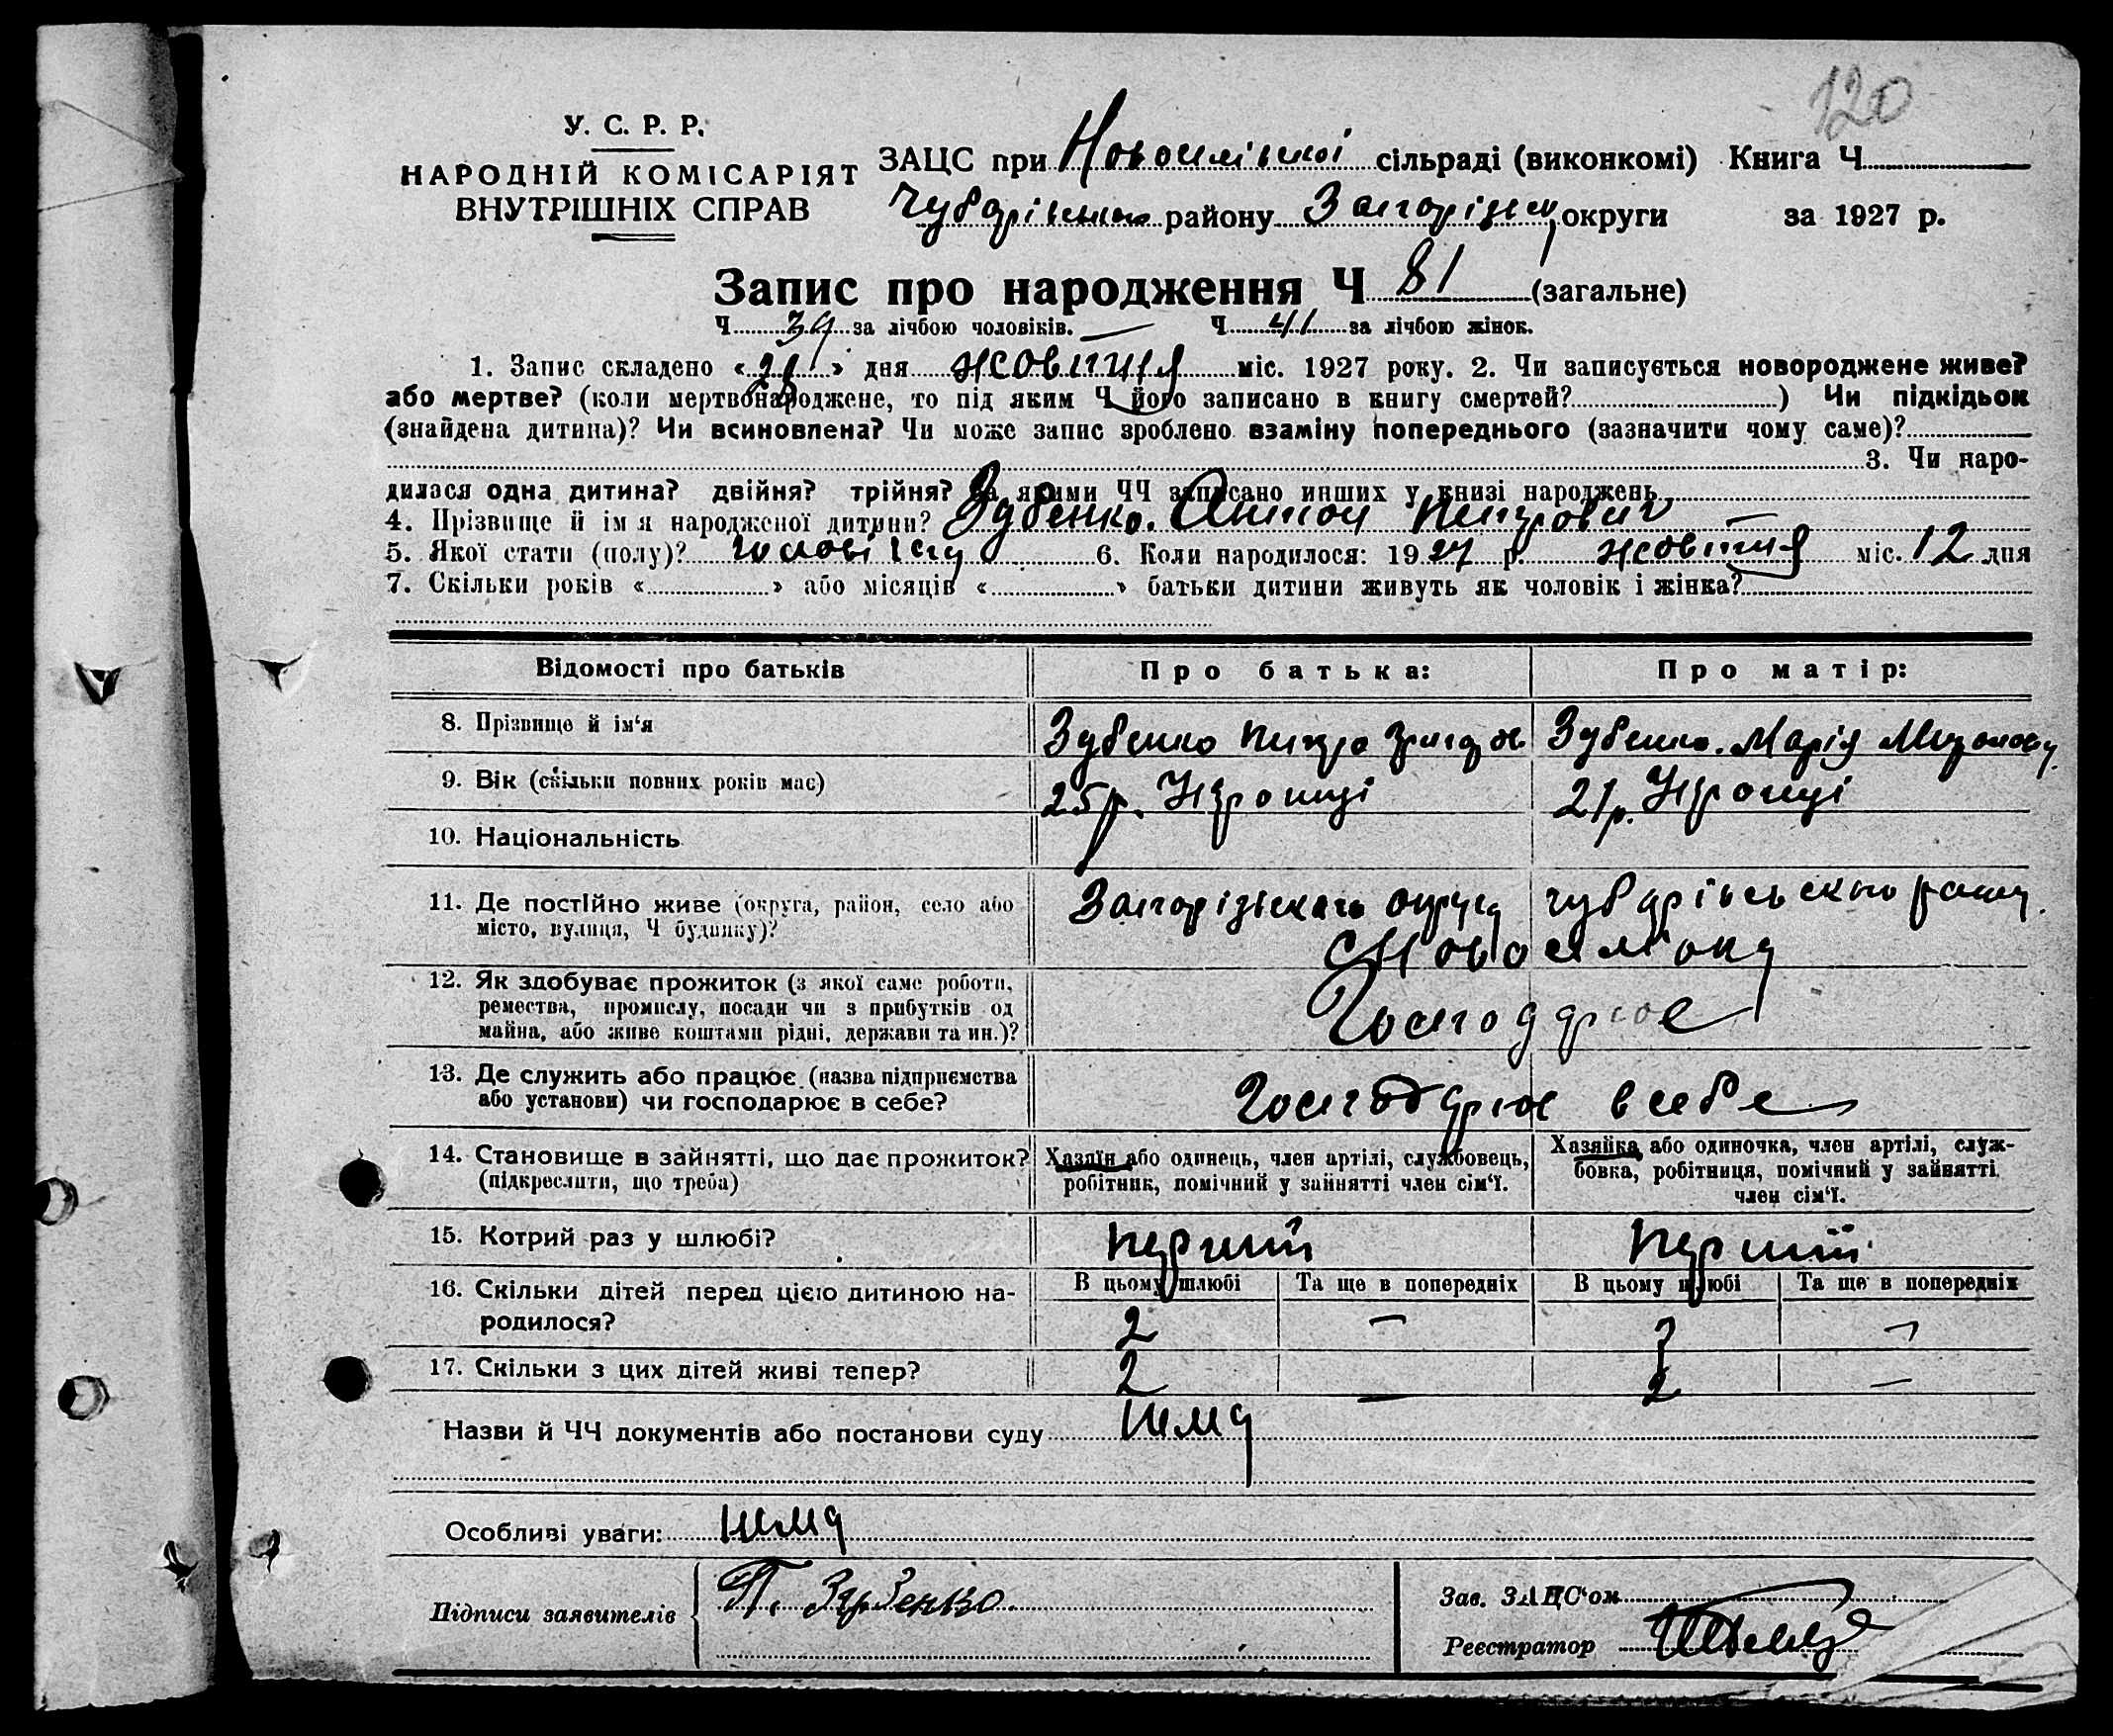 120
У. С. Р. Р.
НАРОДНІЙ КОМІСАРІЯТ
ВНУТРІШНІХ СПРАВ
ЗАЦС при сільраді (виконкомі) Книга Ч.
Чубарівського району округи за 1927 р.
Запис про народження Ч 81 (загальне)
Ч за лічбою чоловіків. — Ч 41 за лічбою жінок.
1. Запис складено « » дня жовтня міс. 1927 року. 2. Чи записується новороджене живе?
або мертве? (коли мертвонароджене, то під яким Ч його записано в книгу смертей? ) Чи підкідьок
(знайдена дитина)? Чи всиновлена? Чи може запис зроблено взаміну попереднього (зазначити чому саме)?
3. Чи наро-
дилася одна дитина? двійня? трійня? За якими ЧЧ записано инших у книзі народжень
4. Прізвище й ім я народженої дитини? Зубенко. Антон Петрович —
5. Якої стати (полу)? 6. Коли народилося: 1927 р. жовтня міс. 12 дня
7. Скільки років « » або місяців « » батьки дитини живуть як чоловік і жінка?
Відомості про батьків Про батька: Про матір:
8. Прізвище й ім'я Зубенко Петро Зубенко. Марія
9. Вік (скільки повних років має) 25 р. Українці 21 р. Українці
10. Національність
11. Де постійно живе (округа, район, село або
місто, вулиця, Ч будинку)?
12. Як здобуває прожиток (з якої саме роботи,
ремества, промислу, посади чи з прибутків од
майна, або живе коштами рідні, держави та ин.)?
13. Де служить або працює (назва підприємства
або установи) чи господарює в себе? в себе
14. Становище в зайнятті, що дає прожиток?
(підкреслити, що треба)
Хазяїн або одинець, член артілі, службовець,
робітник, помічний у зайнятті член сім'ї.
Хазяйка або одиночка, член артілі, служ-
бовка, робітниця, помічний у зайнятті
член сім'ї.
15. Котрий раз у шлюбі? перший перший
16. Скільки дітей перед цією дитиною на-
родилося?
В цьому шлюбі Та ще в попередніх В цьому шлюбі Та ще в попередніх
2 — 2 —
17. Скільки з цих дітей живі тепер? 2 — 2 —
Назви й ЧЧ документів або постанови суду нема
Особливі уваги: нема
Підписи заявителів П. Зубенко.
Зав. ЗАЦС'ом
Реєстратор